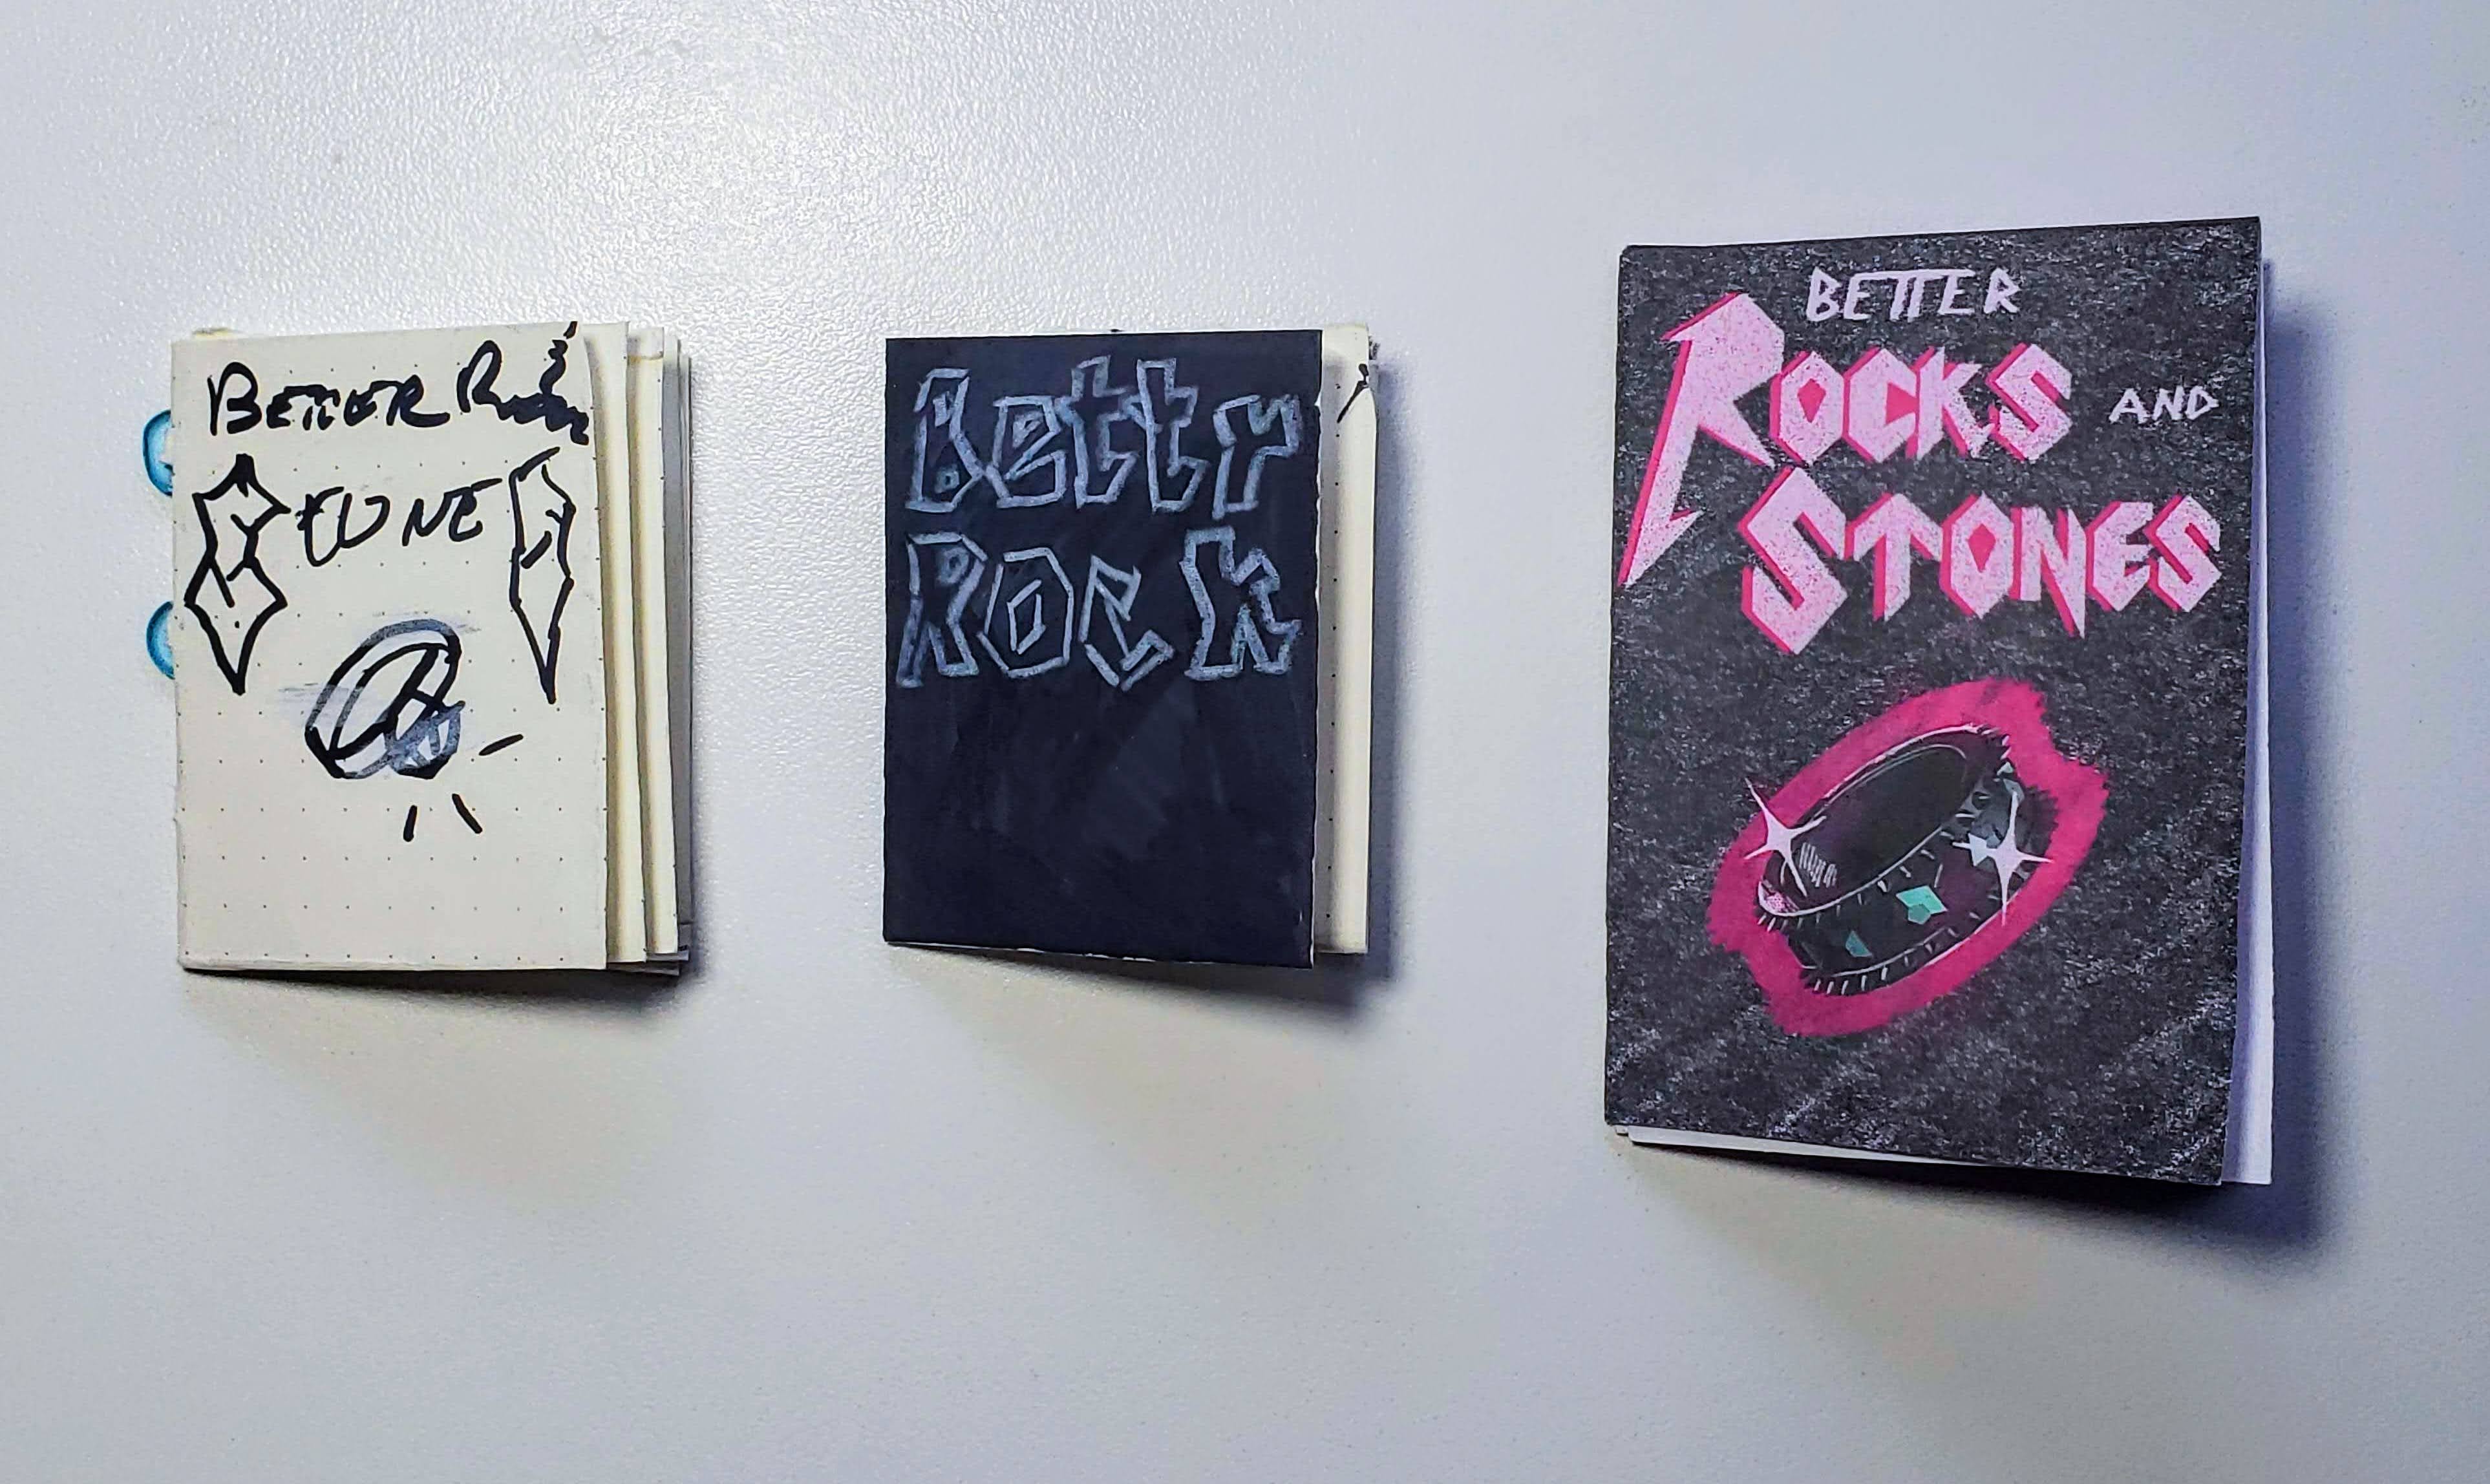 BETTER
STONE
Bettr
Rock
BETTER
ROCKS AND
STONES